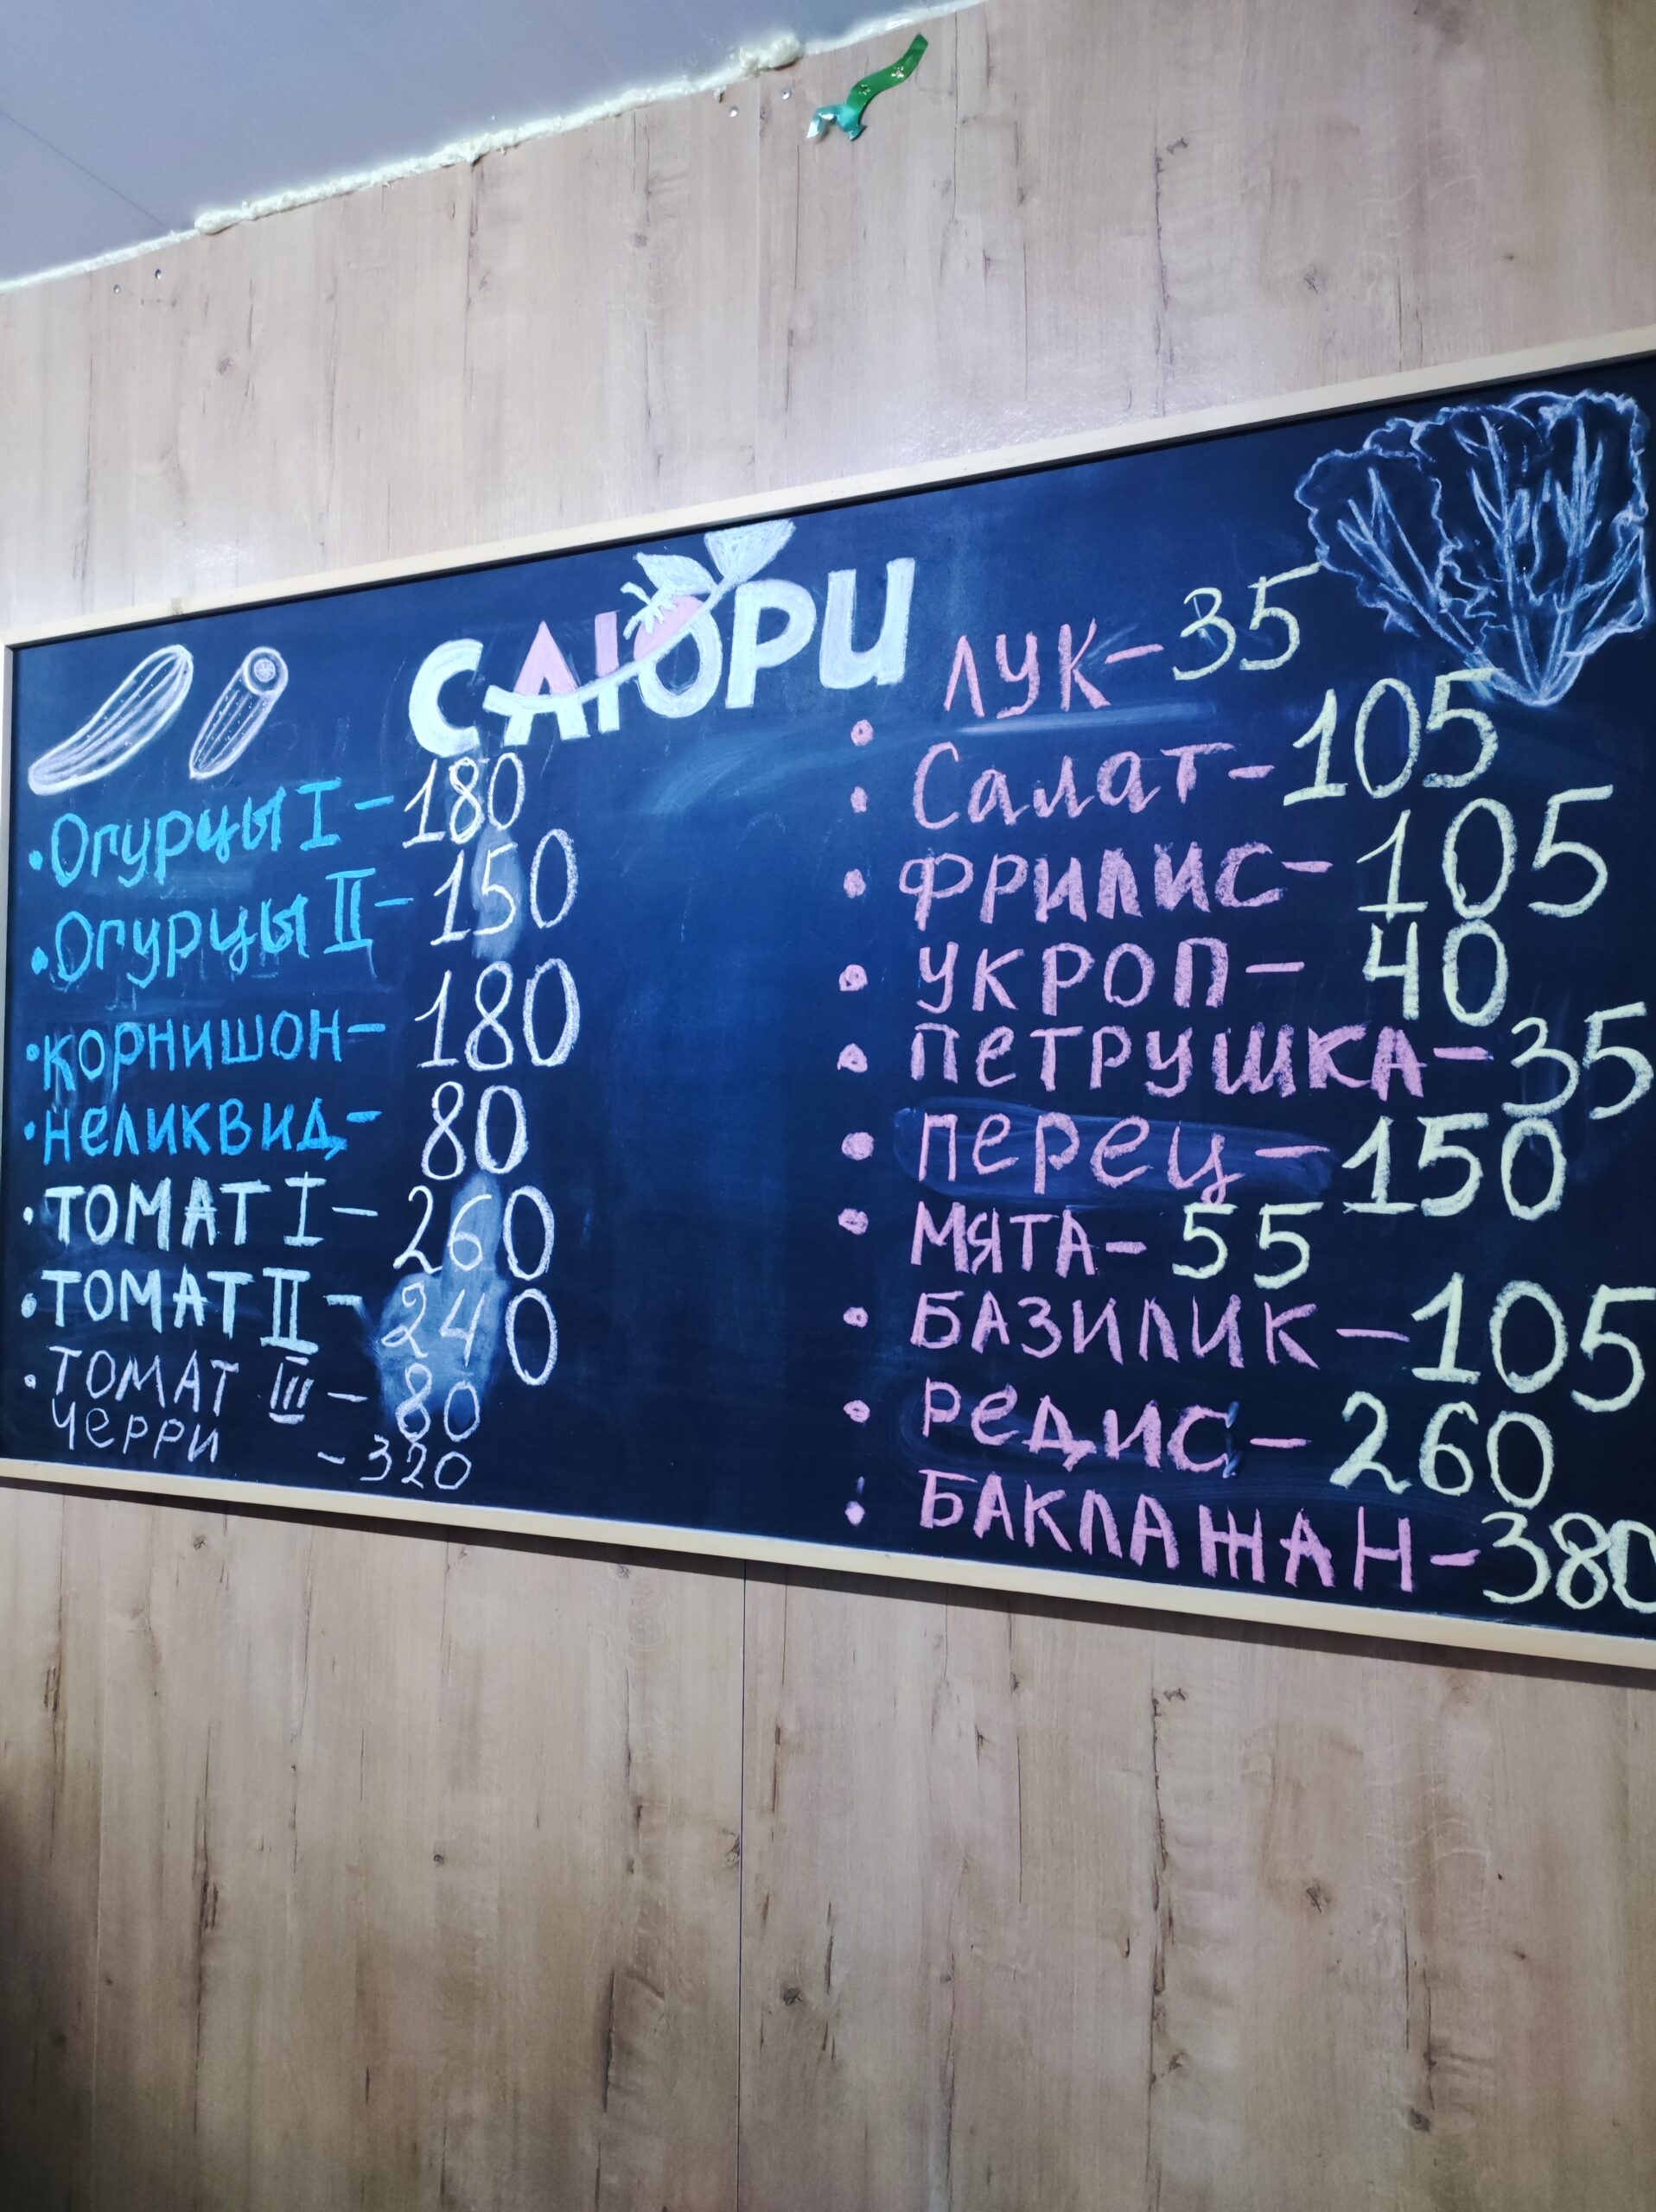 САЮРИ
•Огурцы I - 180
•Огурцы II - 150
•КОРНИШОН- 180
•Неликвид- 80
•ТОМАТ I - 260
•ТОМАТ II - 240
•ТОМАТ III - 80
ЧЕРРИ - 320
• ЛУК - 35
• Салат - 105
• ФРИЛИС - 105
• УКРОП - 40
• ПеТРУШКА - 35
• Перец - 150
• МЯТА - 55
• БАЗИЛИК - 105
• РеДИС - 260
• БАКЛАЖАН - 380